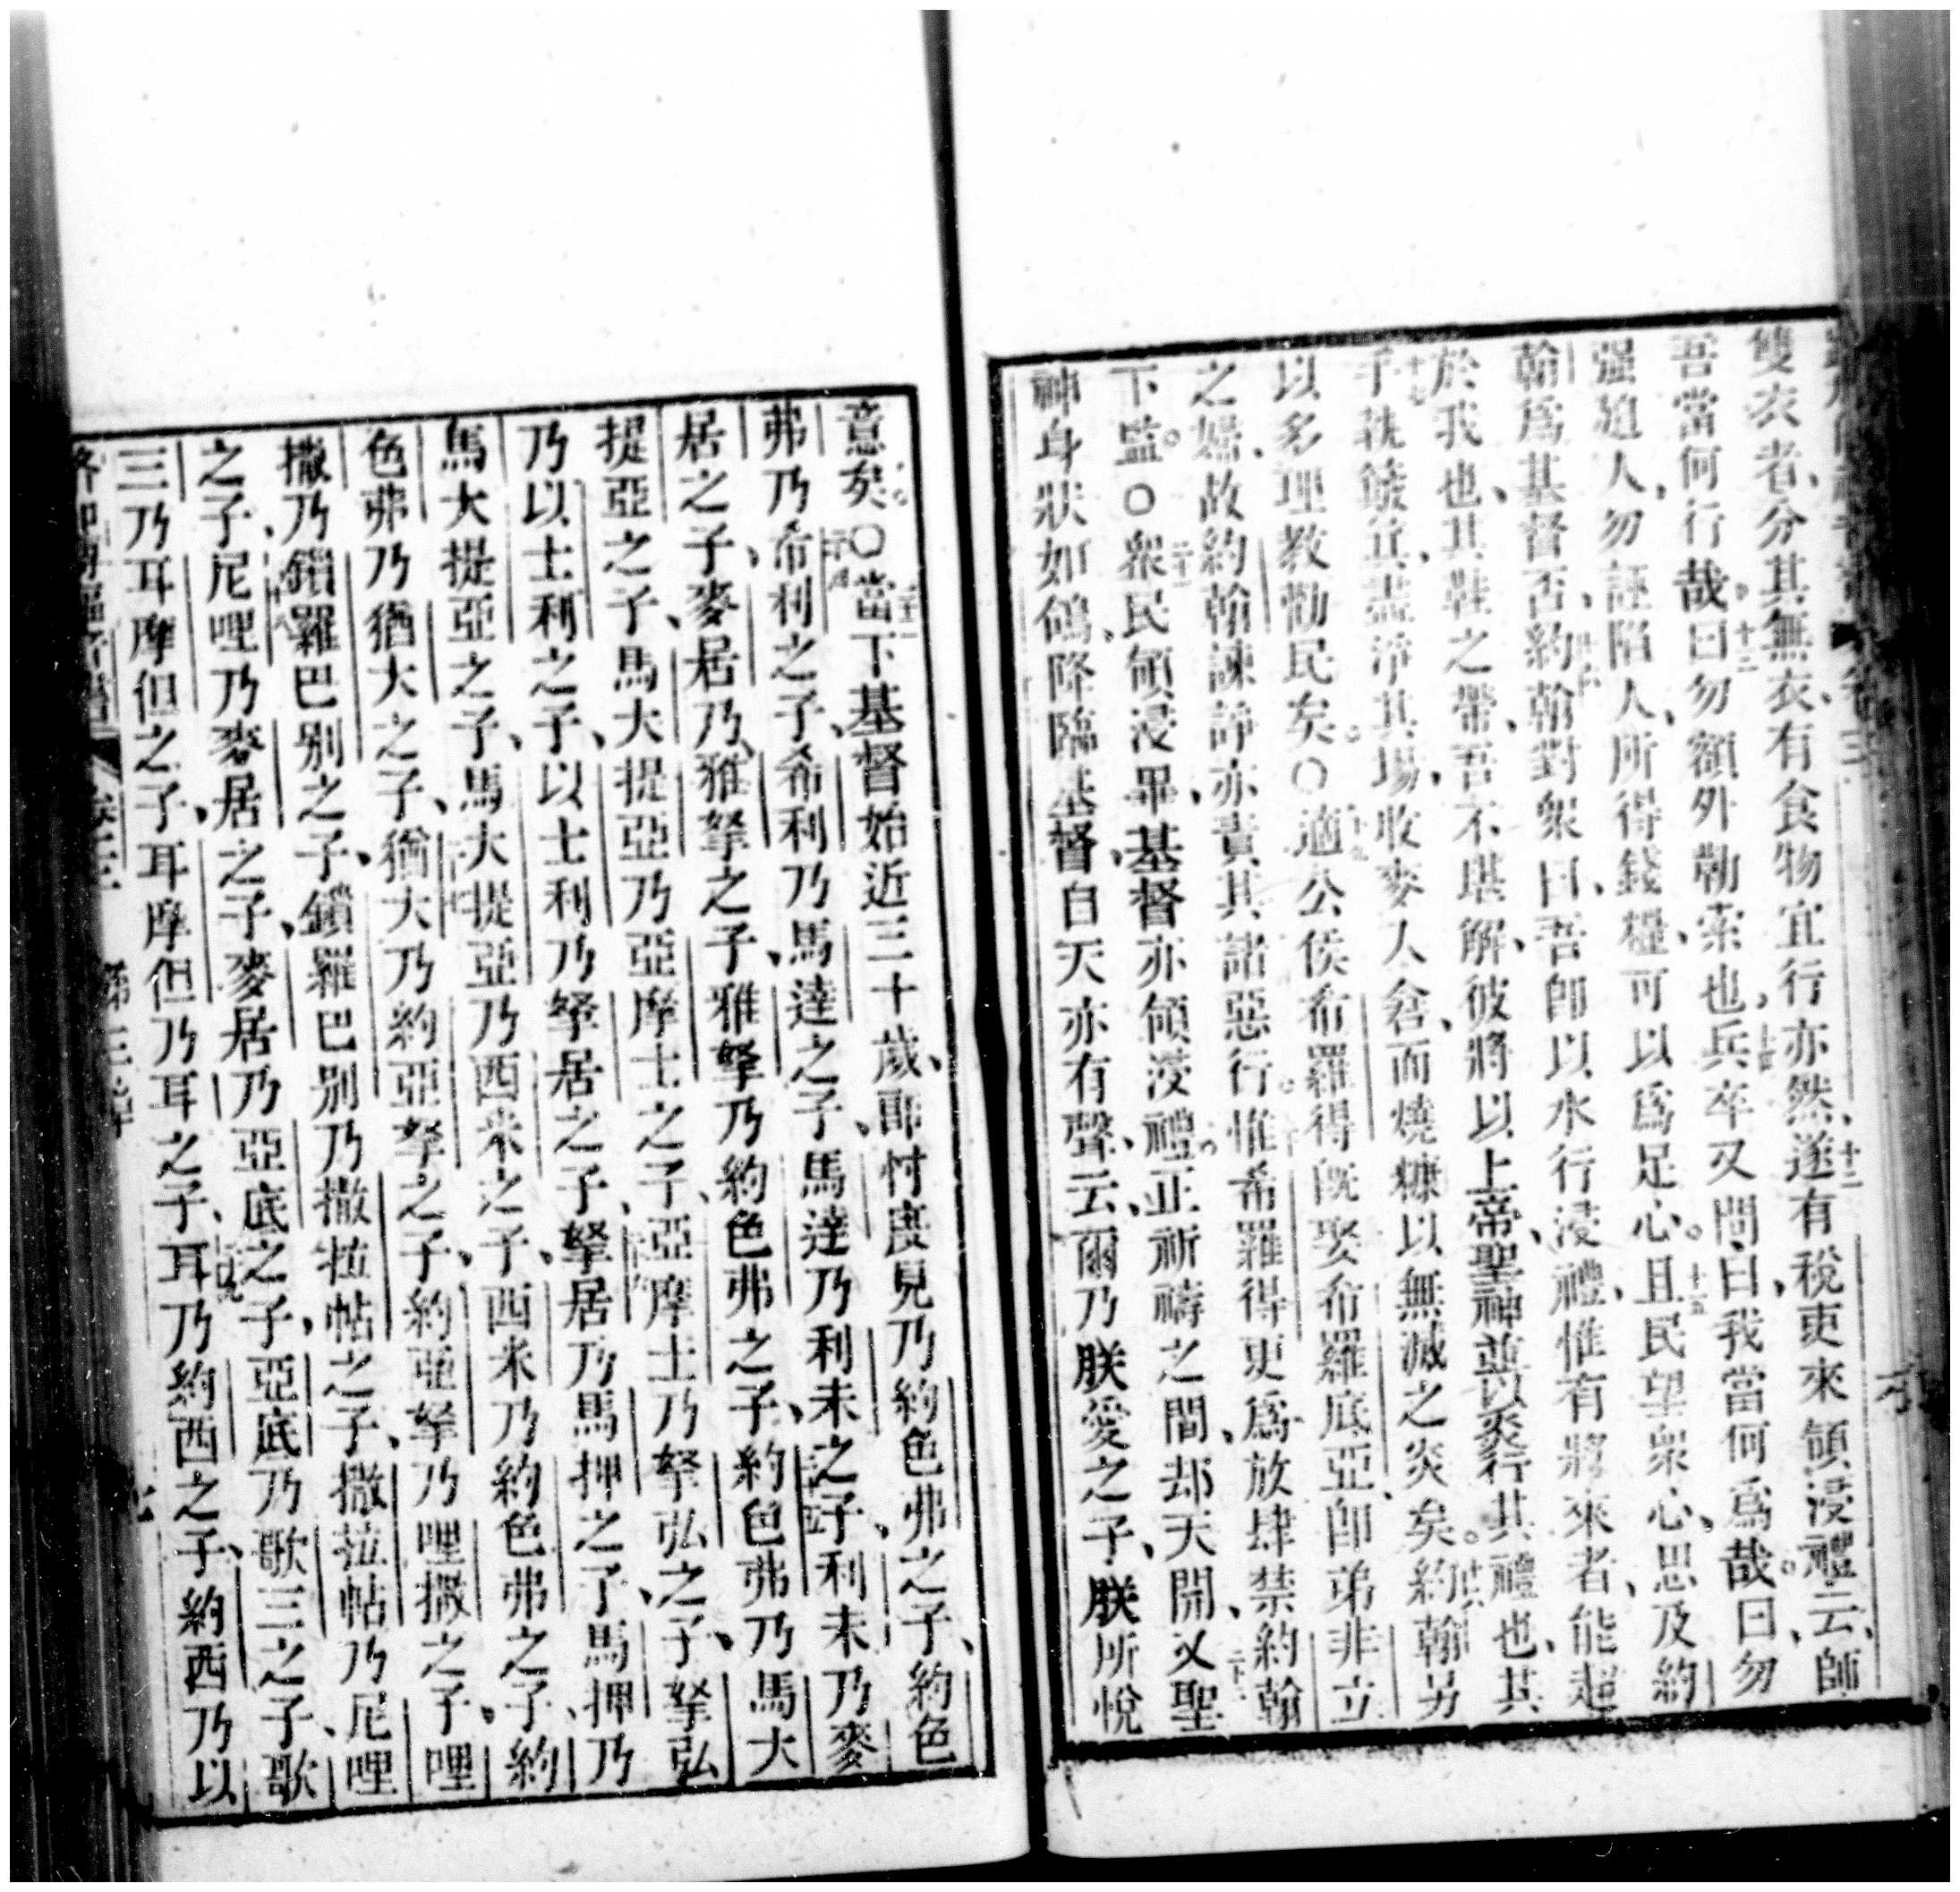 雙衣者、分其無衣、有食物宜行亦然、十二遂有稅吏來領浸禮云、師
吾當何行哉、十三曰勿額外勒索也、十四兵卒又問曰、我當何爲哉。曰、勿
强迫人、勿誣陷人、所得錢糧、可以爲足心。十五且民望衆心、思及約
翰爲基督否、約翰對衆曰、吾卽以水行浸禮、惟有將來者、能超
於我也、其鞋之帶、吾不堪解、彼將以上帝聖神並以炎行其禮也、其
十七手執簸箕、盡淨其場、收麥入倉、而燒糠以無滅之炎矣。約翰另
以多理敎勸民矣。〇十九適公侯希羅得旣娶希羅底亞、卽弟非立
之嫣、故約翰諫諍、亦責其諸惡行。惟希羅得更爲放肆禁約翰
下監。〇二十一衆民領浸畢、基督亦領浸禮。正祈禱之間、却天開、二十二又聖
神身狀如鴿、降臨基督、自天亦有聲、云、爾乃朕愛之子、朕所悅
意矣。〇二十三當下基督始近三十歲、卽忖度見乃約色弗之子、約色
弗乃希利之子、希利乃馬達之子、馬達乃利未之子、利未乃麥
居之子、麥居乃雅拏之子、雅拏乃約色弗之子、約色弗乃馬大
提亞之子、馬大提亞乃亞摩士之子、亞摩士乃拏弘之子、拏弘
乃以士利之子、以士利乃拏居之子、拏居乃馬押之子、馬押乃
馬大提亞之子、馬大提亞乃西米之子、西米乃約色弗之子、約
色弗乃猶大之子、猶大乃約亞拏之子、約亞拏乃哩撒之子、哩
撒乃鎖羅巴別之子、鎖羅巴別乃撒拉帖之子、撒拉帖乃尼哩
之子、尼哩乃麥居之子、麥居乃亞底之子、亞底乃歌三之子、歌
三乃耳摩但之子、耳摩但乃耳之子、耳乃約西之子、約西乃以
卷三 第三章